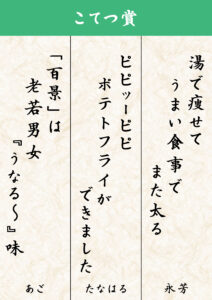 こてつ賞
湯で痩せて
うまい食事で
また太る
永芳
ピピッーピピ
ポテトフライが
できました
たなはる
「百景」は
老若男女
『うなる〜』味
あご